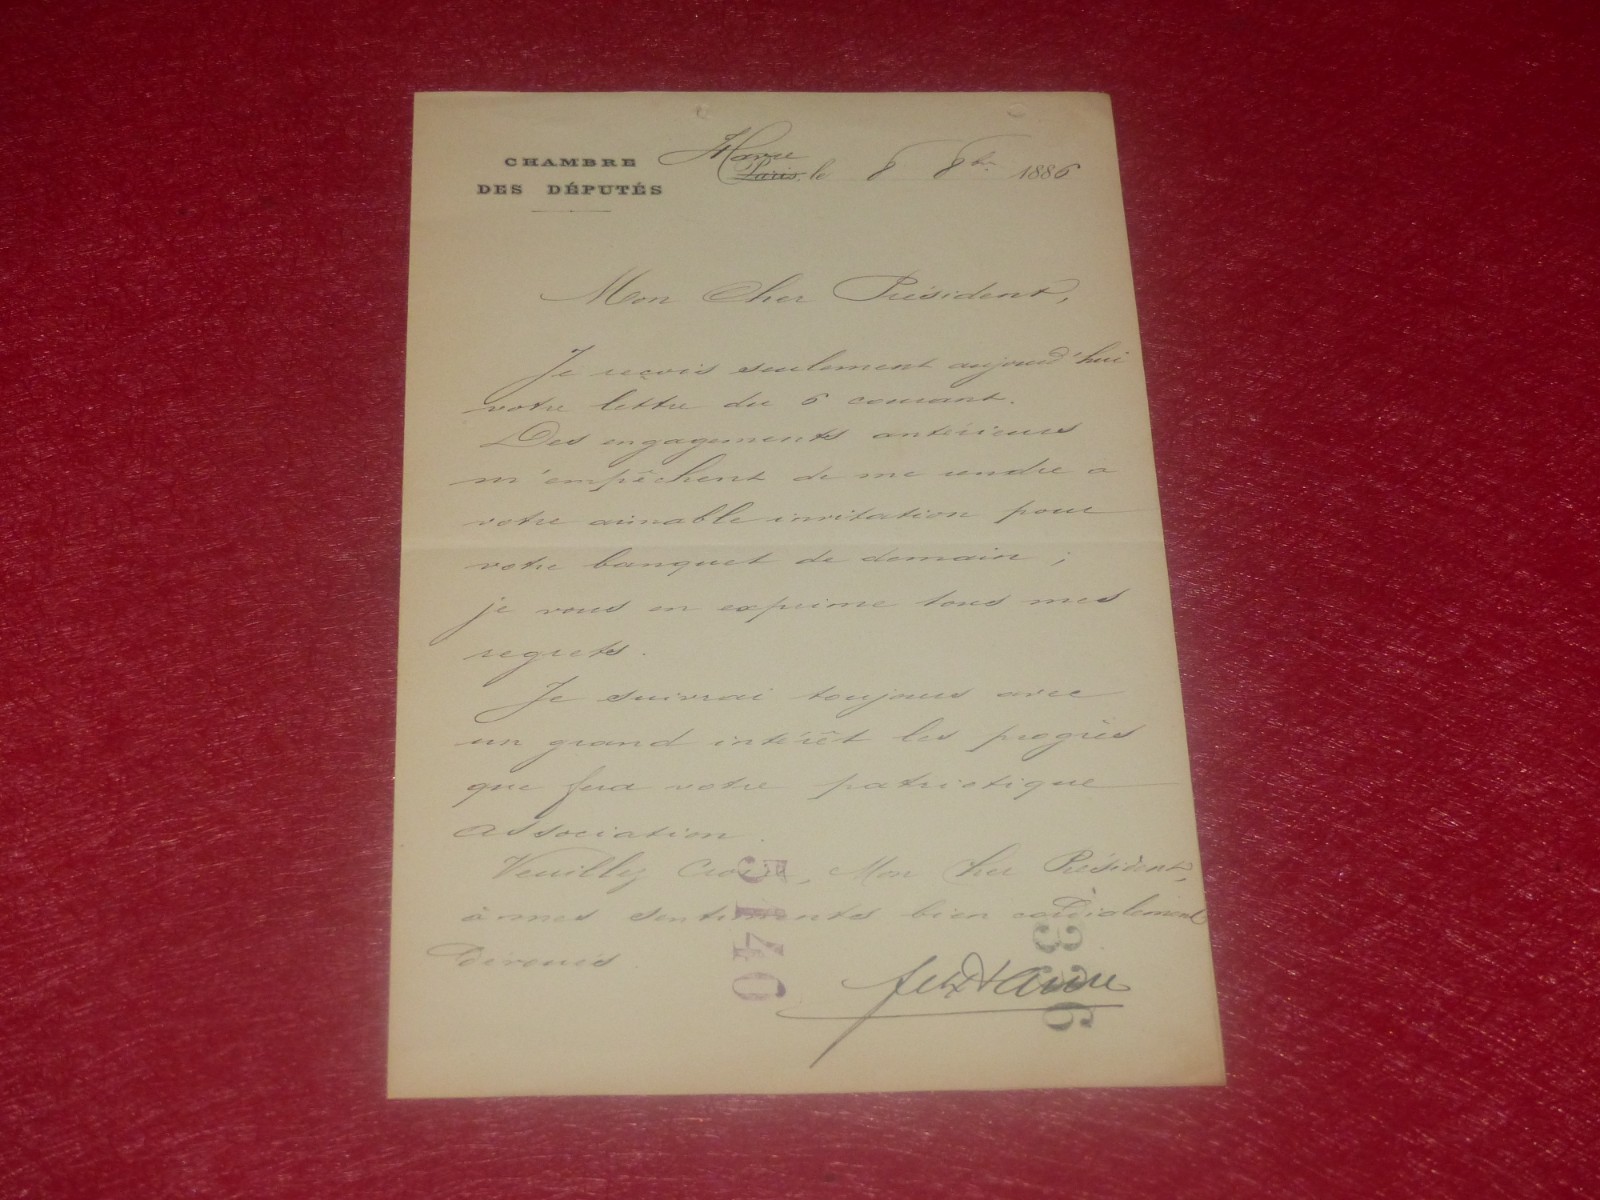 CHAMBRE
DES DÉPUTÉS
Havre
Paris, le 8 8bre 1886
Mon Cher Président,
Je reçois seulement aujourd'hui
votre lettre du 6 courant.
Des engagements antérieurs
m'empêchent de me rendre a
votre aimable invitation pour
votre banquet de demain ;
je vous en exprime tous mes
regrets.
Je suivrai toujours avec
un grand intérêt les progrès
que fera votre patriotique
association.
Veuillez Croire, Mon Cher Président,
à mes sentiments bien cordialement
Dévoués.
Felix Faure
5140